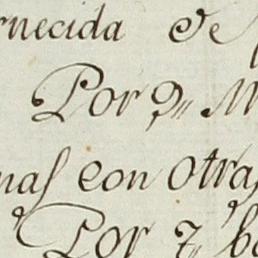 rnecida de
Por 9,, M
nas con otras
Por 7,, b